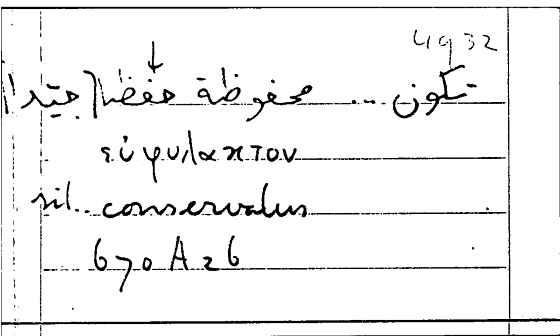 4932
تكون ... محفوظة حفظا جيدا
εὐφυλακτον
sit.. conservatus
670 A 26